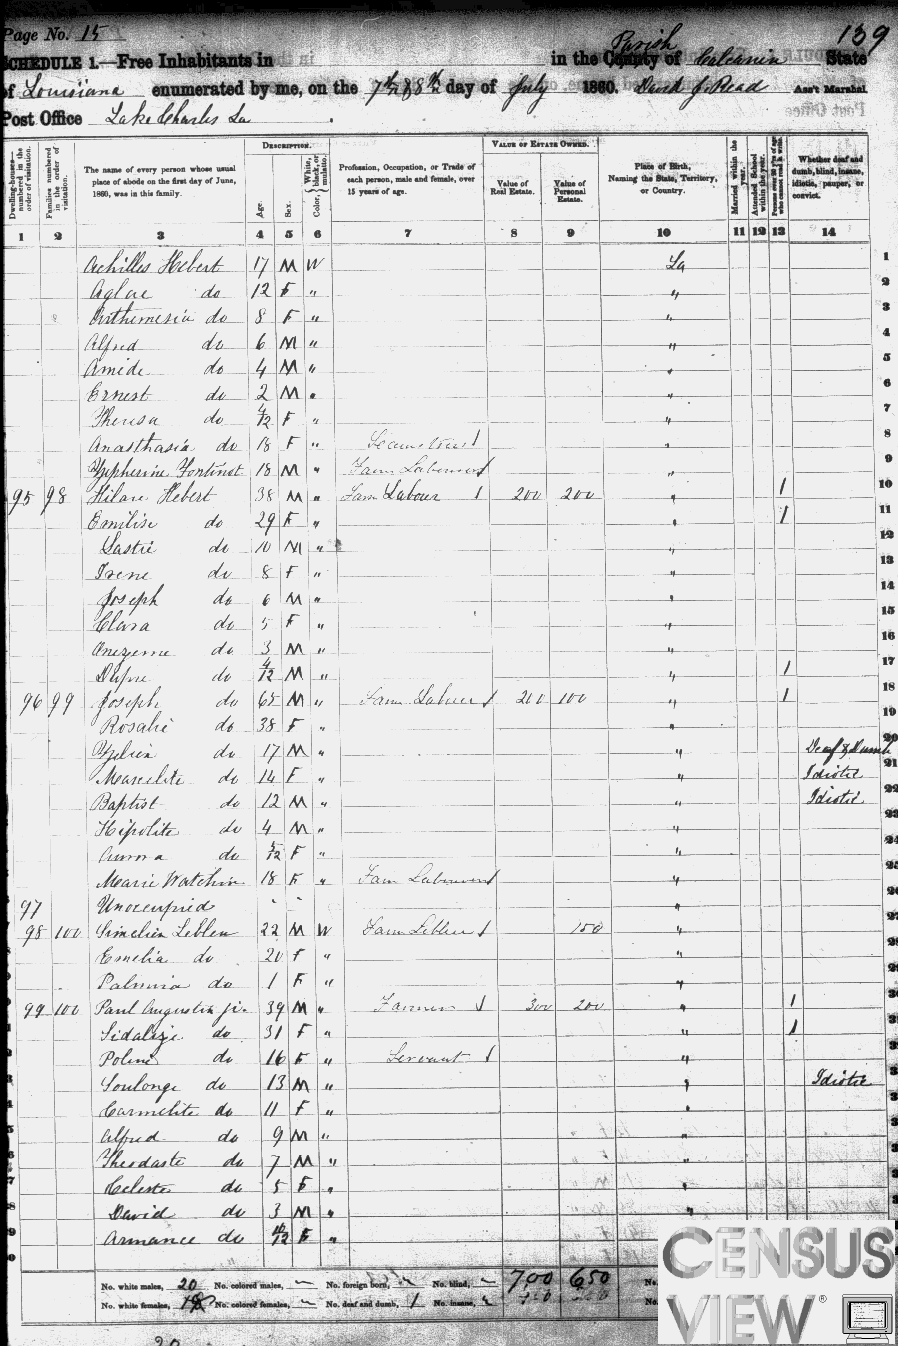 Page No. 15
139
SCHEDULE 1.—Free Inhabitants in in the County of Parish Calcasieu State
of Louisiana enumerated by me, on the 7th & 8th day of July 1860. David J. Read Ass't Marshal
Post Office Lake Charles La
Dwelling-houses—numbered in the order of visitation.
Families numbered in the order of visitation.
The name of every person whose usual place of abode on the first day of June, 1860, was in this family.
DESCRIPTION.
Age.
Sex.
Color, White, black, or mulatto.
Profession, Occupation, or Trade of each person, male and female, over 15 years of age.
VALUE OF ESTATE OWNED.
Value of Real Estate.
Value of Personal Estate.
Place of Birth, Naming the State, Territory, or Country.
Married within the year.
Attended School within the year.
Persons over 20 y'rs of age who cannot read & write.
Whether deaf and dumb, blind, insane, idiotic, pauper, or convict.
1 2 3 4 5 6 7 8 9 10 11 12 13 14
Achilles Hebert 17 M W La 1
Aglae do 12 F " " 2
Arthemesia do 8 F " " 3
Alfred do 6 M " " 4
Amide do 4 M " " 5
Ernest do 2 M " " 6
Theresa do 4/12 F " " 7
Anasthasia do 18 F " Seamstress / " 8
Zepherine Fontinot 18 M " Farm Labourer / " 9
95 98 Hilare Hebert 38 M " Farm Labour / 200 200 " / 10
Emilise do 29 F " " / 11
Lastie do 10 M " " 12
Irene do 8 F " " 13
Joseph do 6 M " " 14
Clara do 5 F " " 15
Onezeme do 3 M " " 16
Dupre do 4/12 M " " / 17
96 99 Joseph do 65 M " Farm Labour / 200 100 " / 18
Rosalie do 38 F " " 19
do 17 M " " Deaf & Dumb 20
Marcelite do 14 F " " Idiotic 21
Baptist do 12 M " " Idiotic 22
Hipolite do 4 M " " 23
Aurora do 5/12 F " " 24
Marie 18 F " Farm Labourer / " 25
97 Unoccupied " 26
98 100 Simelien Lebleu 22 M W Farm Lebleu / 150 " 27
Emelia do 20 F " " 28
Palmira do 1 F " " 29
99 100 Paul Augustin jr. 39 M " Farmer / 300 200 " / 30
Sidalize do 31 F " " /
Poline do 16 F " Servant / "
Soulonge do 13 M " " Idiotic
Carmelite do 11 F " "
Alfred do 9 M " "
Theodaste do 7 M " "
Celeste do 5 F " "
David do 3 M " "
Armance do 10/12 F "
No. white males, 20 No. colored males, — No. foreign born, — No. blind, — 700 650 No.
No. white females, 18 No. colored females, — No. deaf and dumb, 1 No. insane, No.
20
CENSUS
VIEW®